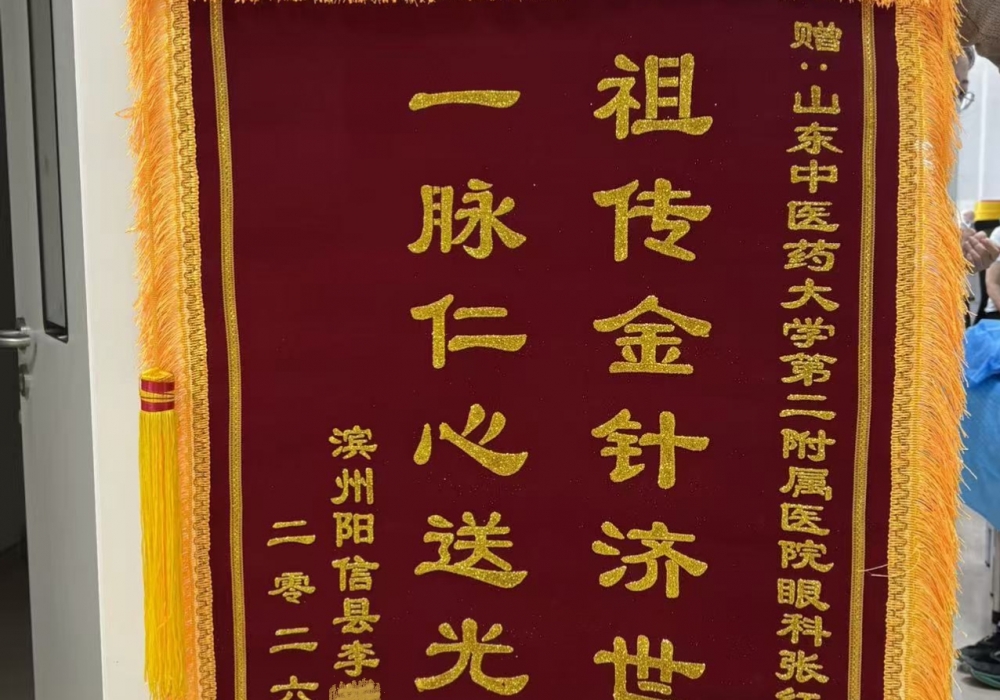 赠:山东中医药大学第二附属医院眼科张
祖传金针济世
一脉仁心送光
滨州阳信县李
二零二六